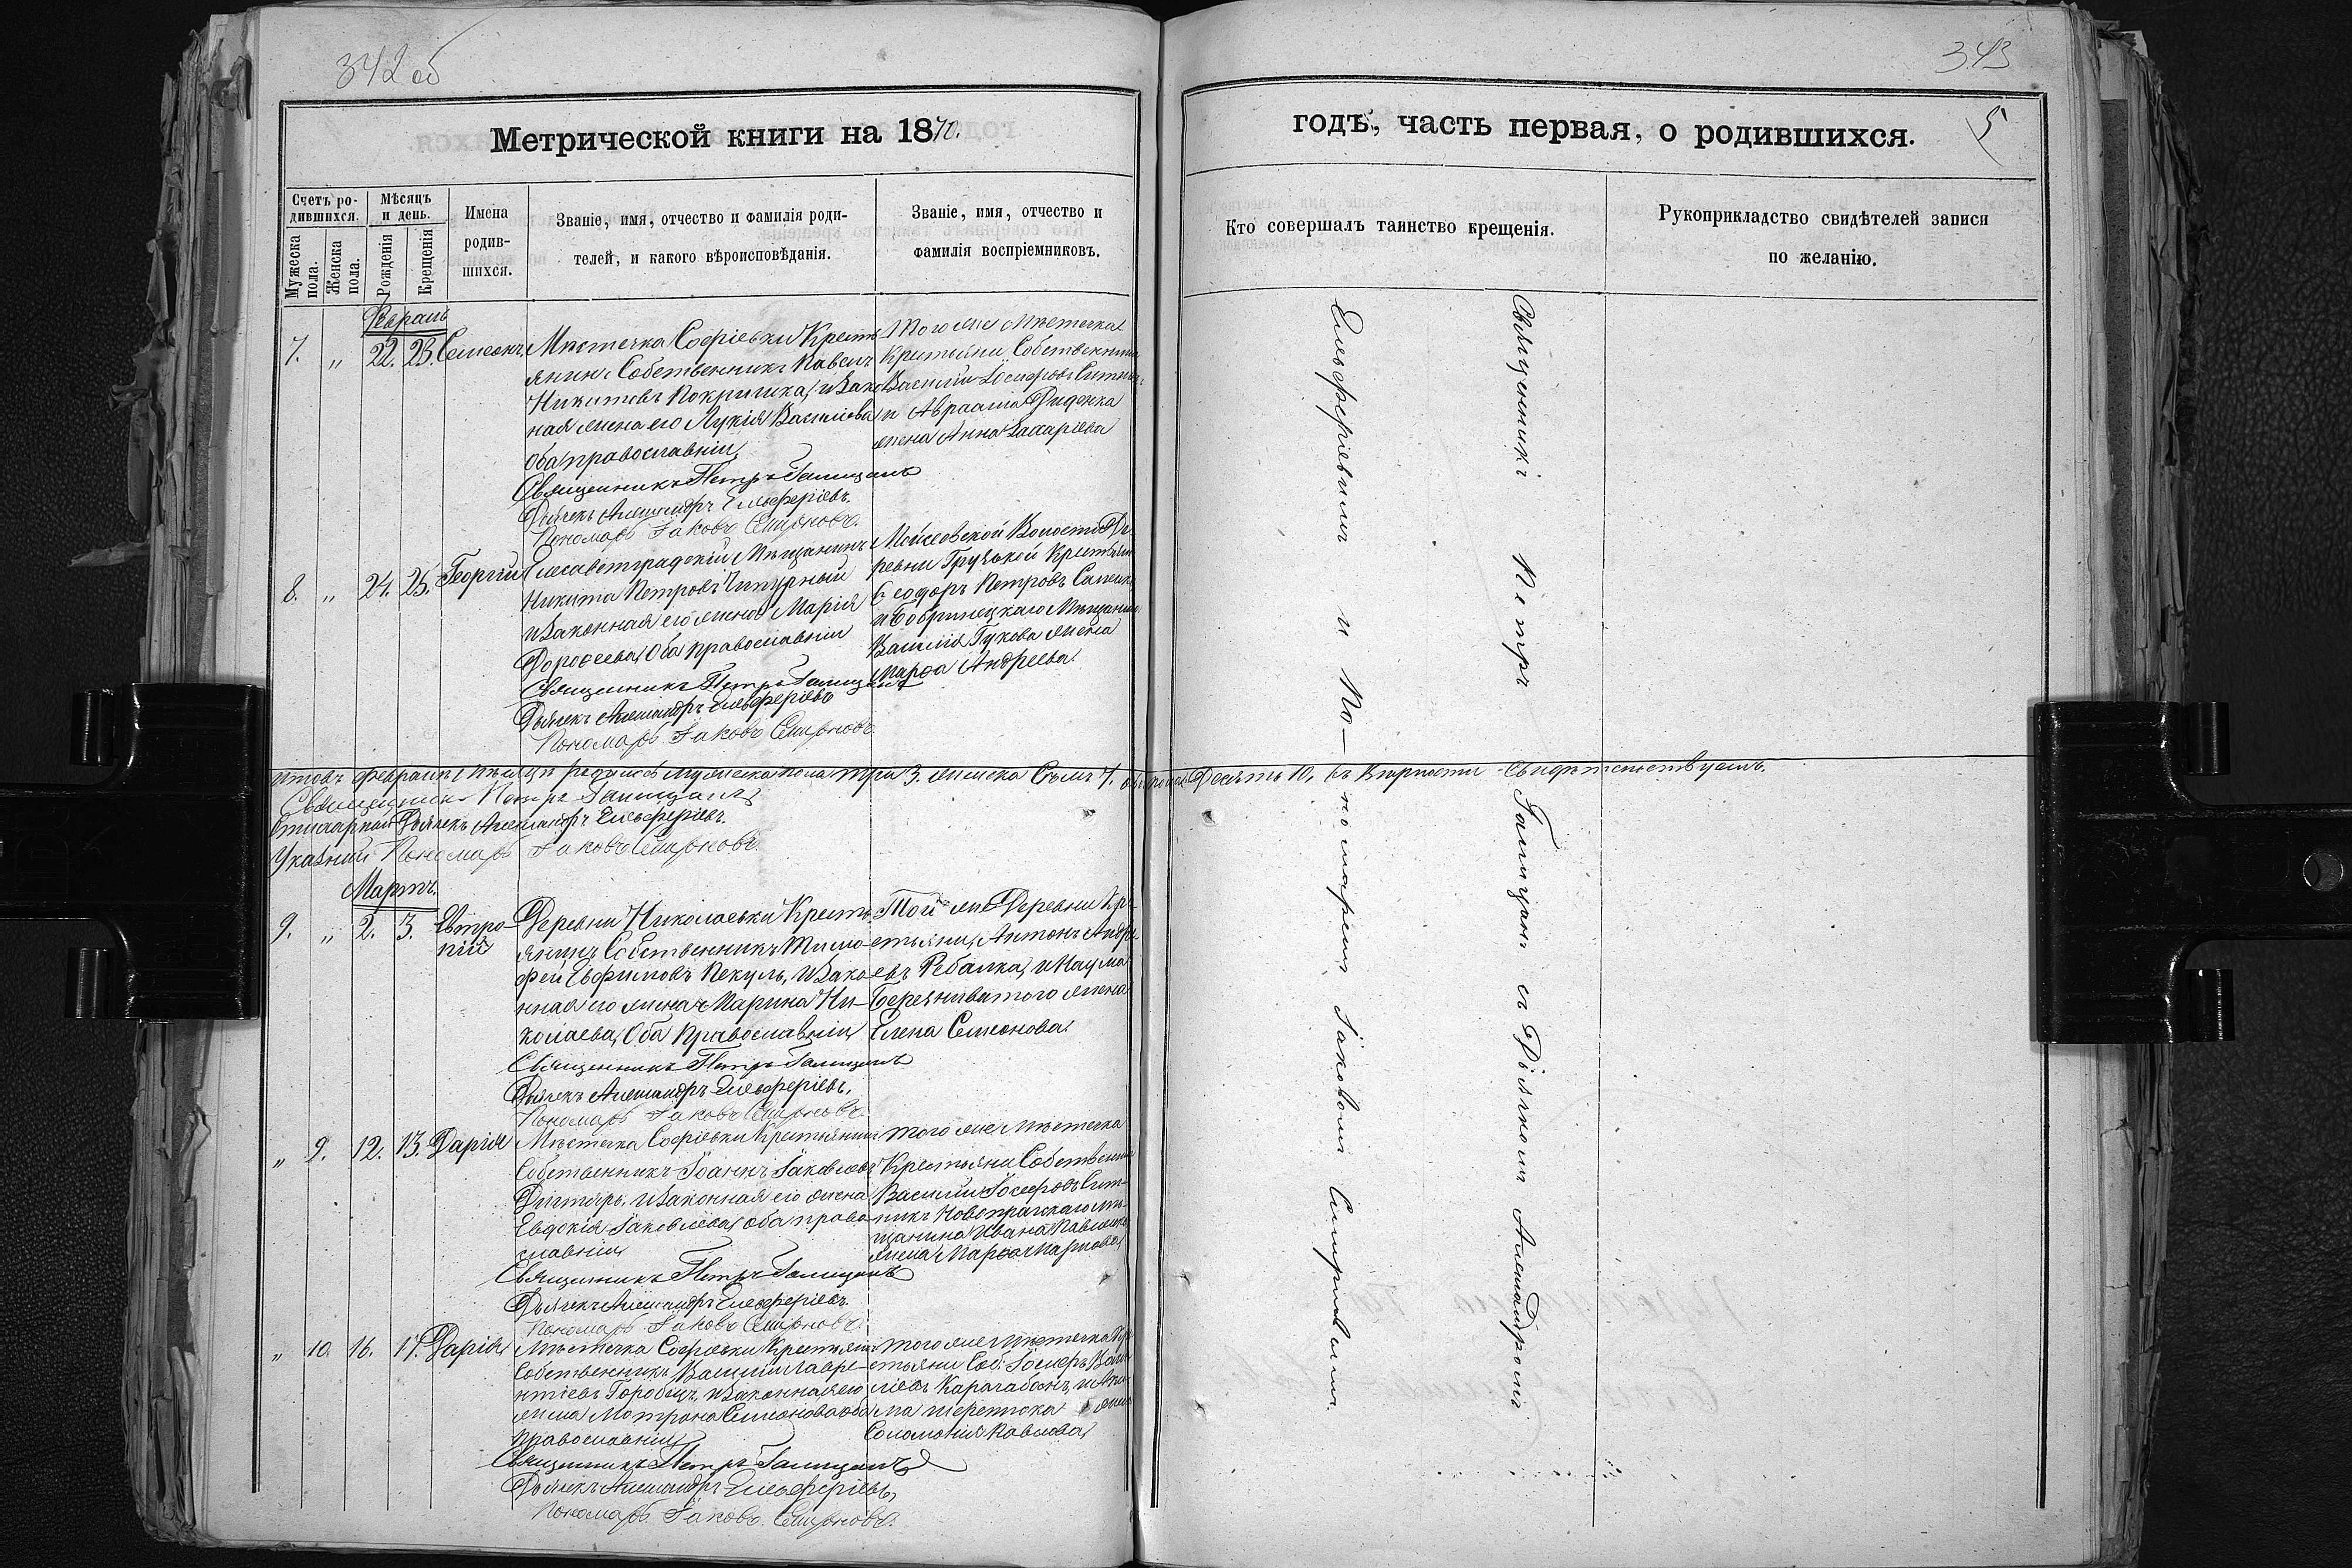 342 об
Метрической книги на 1870.
Счетъ ро-
дившихся.
Мужеска пола.
Женска пола.
Мѣсяцъ и день.
Рожденія
Крещенія
Имена родив-
шихся.
Званіе, имя, отчество и фамилія роди-
телей, и какого вѣроисповѣданія.
Званіе, имя, отчество и
фамилія воспріемниковъ.
Февраль
7. „ 22. 23. Симеонъ
Мѣстечка Софіевки Кресть
янинъ Собственникъ Павелъ
Никитовъ Покришка, и Зако
ная жена его Лукія Василіева
Оба православніи
Священникъ Петръ Галицанъ
Дьячекъ Александръ Елевферіевъ.
Пономарь Іаковъ Смирновъ.
Того же Мѣстечка
Крестьяни Собственники
Василій Іосифовъ Ситник
и Авраама Диденка
жена Анна Захаріева
8. „ 24. 25. Георгій
Елисаветградскій Мѣщанинъ
Никита Петровъ Чипурный
и Законная его жена Марія
Дороѳеева, Оба православніи
Священникъ Петръ Галицанъ
Дьячекъ Александръ Елевферіевъ
Пономарь Іаковъ Смирновъ.
Моисеевской Волости Де
ревни Грузькой Крестьян
Ѳеодоръ Петровъ
и Бобринецкаго Мѣщанина
Василія Гукова жена
Марѳа Андреева
Итовъ Февралѣ Мѣсяцѣ родилось Мужеска пола три 3. женска Семь 7. обоего пола Десять 10, въ Вѣрности свидѣтельствуемъ.
Священникъ Петръ Галицанъ
Дьячекъ Александръ Елевферіевъ.
Указный Пономарь Іаковъ Смирновъ.
Мартъ.
9. „ 2. 3. Евтро-
пій
Деревни Николаевки Кресть
янинъ Собственникъ Тимо-
фей Евфимовъ Пекуль, и Зако
нная его жена Марина Ни-
колаева, Оба Православніи
Священникъ Петръ Галицанъ
Дьячекъ Александръ Елевферіевъ.
Пономарь Іаковъ Смирновъ.
Той же Деревни Кр
етьяни, Антонъ Андре
евъ Рибалка, и Наума
Березниватого жена
Елена Семионова
„ 9. 12. 13. Дарія
Мѣстечка Софіевки Крестьянинъ
Собственникъ Іоаннъ Іаковлевъ
Дигтярь, и Законная его жена
Евдокія Іаковлева, оба право
славніи
Священникъ Петръ Галицанъ
Дьячекъ Александръ Елевферіевъ.
Пономарь Іаковъ Смирновъ.
Того же Мѣстечка
Крестьяни Собственни
Василій Іосифовъ Сит-
никъ Новопражскаго мѣ-
щанина Ивана Павленка
жена Марѳа Маркова
„ 10. 16. 17. Дарія
Мѣстечка Софіевки Крестьянинъ
Собственникъ Василій Лавре-
нтіевъ Горобецъ, и Законная его
жена Мотрона Семионова оба
православніи
Священникъ Петръ Галицанъ
Дьячекъ Александръ Елевферіевъ,
Пономарь Іаковъ Смирновъ.
Того же Мѣстечка Кре
стьяни Соб. Іосифъ Васи
ліевъ Карачабанъ, и
ма Шереметока жена
Соломонія Павлова
343
5
годъ, часть первая, о родившихся.
Кто совершалъ таинство крещенія.
Рукоприкладство свидѣтелей записи
по желанію.
Священникъ Петръ Галицанъ съ Дьячкомъ Александромъ
Елевферіевымъ и По-номаремъ Іаковомъ Смирновымъ.